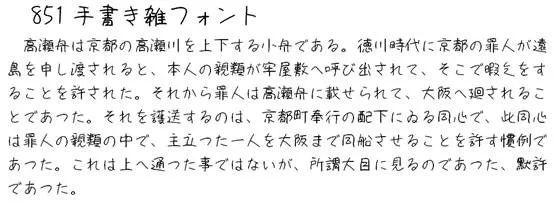 851手書き雑フォント
高瀬舟は京都の高瀬川を上下する小舟である。徳川時代に京都の罪人が遠
島を申し渡されると、本人の親類が牢屋敷へ呼び出されて、そこで暇乞をす
ることを許された。それから罪人は高瀬舟に載せられて、大阪へ廻されるこ
とであった。それを護送するのは、京都町奉行の配下にゐる同心で、此同心
は罪人の親類の中で、主立つた一人を大阪まで同船させることを許す慣例で
あった。これは上へ通つた事ではないが、所謂大目に見るのであった、默許
であった。